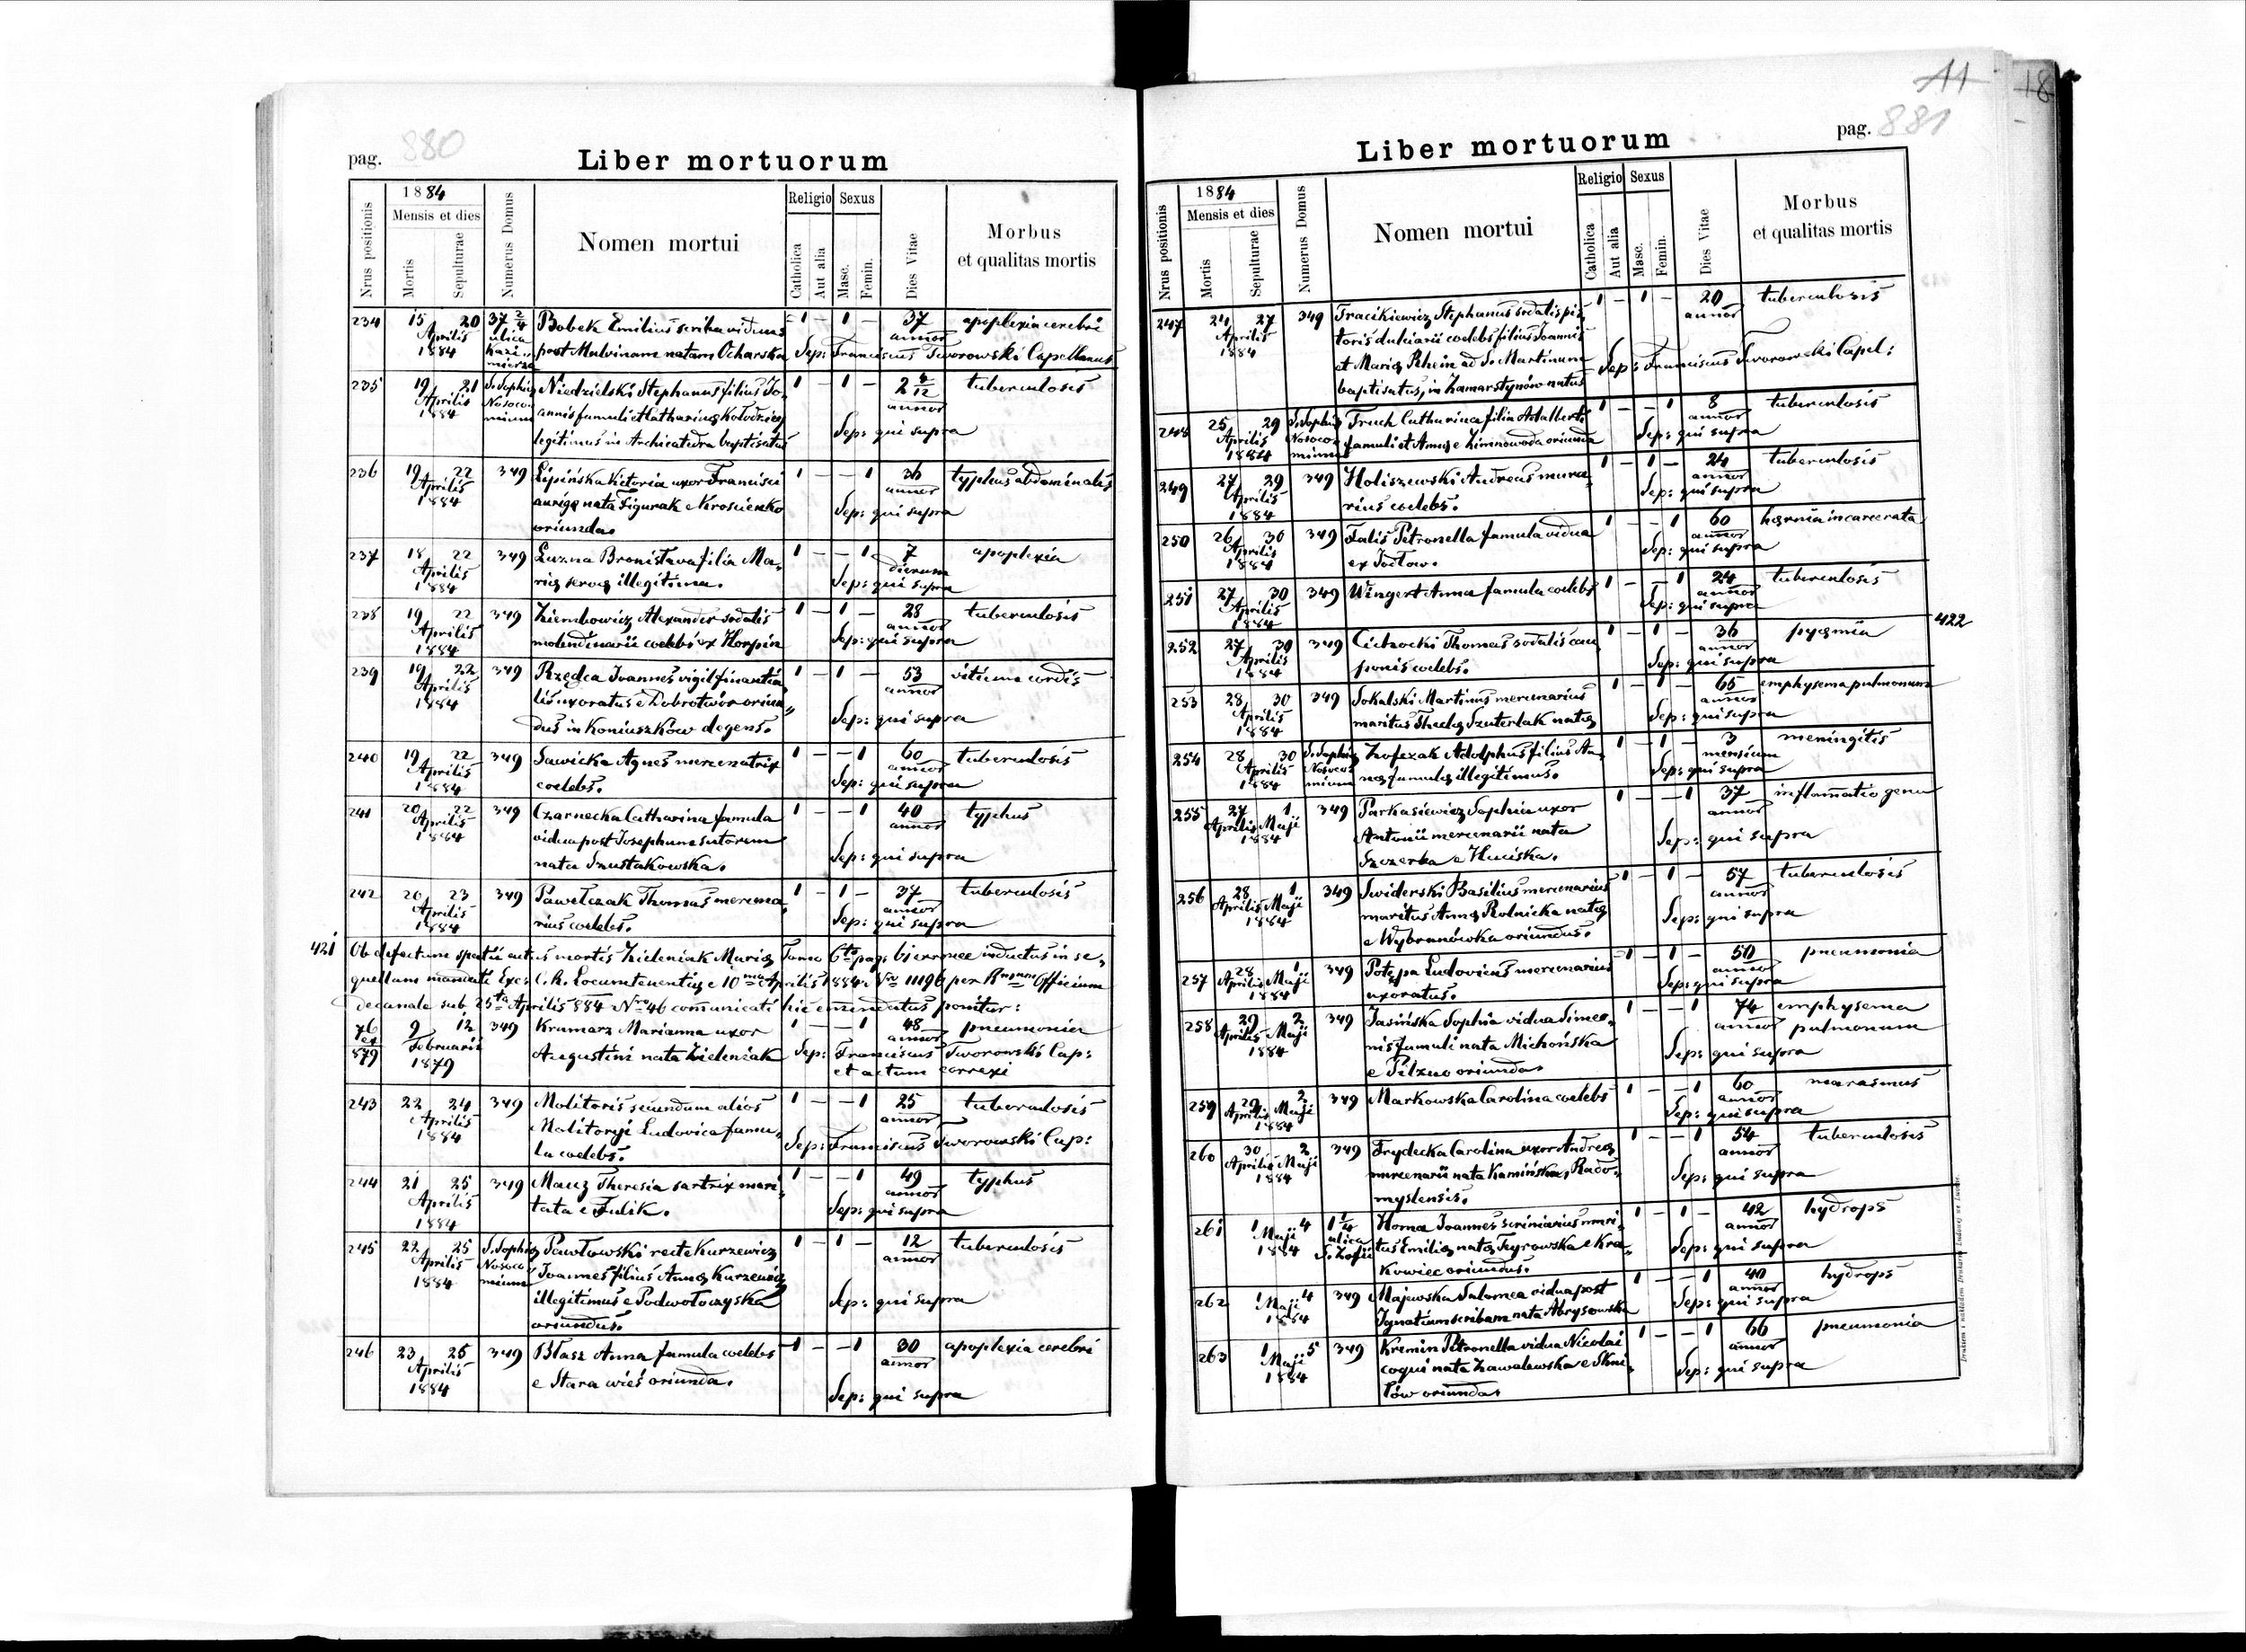 880
pag.
Liber mortuorum
Nrus positionis
1884
Mensis et dies
Mortis
Sepulturae
Numerus Domus
Nomen mortui
Religio
Catholica
Aut alia
Sexus
Masc.
Femin.
Dies Vitae
Morbus
et qualitas mortis
234 15 20 37 2/4 Bobek Emilius scriba viduus 1 – 1 – 37 apoplexia cerebri
Aprilis ulica annor
1884 Kazi„ mierza post Malvinam natam Ocharska Sep: Franciscus Tworowski Capellanus
235 19 21 S. Sophiæ Niedzielski Stephanus filius Jo„ 1 – 1 – 2 4/12 tuberculosis
Aprilis Nosoco„ annis famuli et Catharinæ Kołodziej annor
1884 mium legitimus in Archicatedra baptisatus Sep: qui supra
236 19 22 349 Lipińska Victoria uxor Francisci 1 – – 1 36 typhus abdominalis
Aprilis aurigæ nata Figurak e Krościenko annor
1884 oriunda. Sep: qui supra
237 18 22 349 Luzna Bronisława filia Ma„ 1 – – 1 7 apoplexia
Aprilis riæ servæ illegitima. dierum
1884 Sep: qui supra
238 19 22 349 Ziembowicz Alexander sodalis 1 – 1 – 28 tuberculosis
Aprilis molendinarii coelebs ex Horpin annor
1884 Sep: qui supra
239 19 22 349 Rzędca Joannes vigil finantia„ 1 – 1 – 53 vitium cordis
Aprilis lis uxoratus e Dobrotwór oriun„ annor
1884 dus in Koniuszków degens. Sep: qui supra
240 19 22 349 Sawicka Agnes mercenatrix 1 – – 1 60 tuberculosis
Aprilis coelebs. annor
1884 Sep: qui supra
241 20 22 349 Czarnecka Catharina famula 1 – – 1 40 typhus
Aprilis vidua post Josephum sutorem annor
1884 nata Szustakowska. Sep: qui supra
242 20 23 349 Pawełczak Thomas mercena„ 1 – 1 – 37 tuberculosis
Aprilis rius coelebs. annor
1884 Sep: qui supra
421 Ob defectum spatii actus mortis Zieleniak Mariæ Tomo 6to pag. 61 erronee inductus in se„
quellam mandati Exc. C. k. Locumtenentiæ e 10ma Aprilis 1884 Nro 11196 per Rmum Officium
Decanale sub 25ta Aprilis 884 Nro 46 communicati hic emendatus ponitur:
76 9 12 349 Kramarz Marianna uxor 1 – – 1 48 pneumonia
ex Februarii annor
879 1879 Augustini nata Zieleniak Sep: Franciscus Tworowski Cap:
et actum correxi
243 22 24 349 Molitoris secundum alios 1 – – 1 25 tuberculosis
Aprilis Molitoryj Ludovica famu„ annor
1884 la coelebs. Sep: Franciscus Tworowski Cap:
244 21 25 349 Maez Theresia sartrix mari„ 1 – – 1 49 typhus
Aprilis tata e Fulik. annor
1884 Sep: qui supra
245 22 25 S. Sophiæ Pawłowski recte Kurzewicz 1 – 1 – 12 tuberculosis
Aprilis Nosoco„ Joannes filius Annæ Kurzewicz annor
1884 mium illegitimus e Podwołoczyska Sep: qui supra
oriundus.
246 23 26 349 Błasz Anna famula coelebs 1 – – 1 30 apoplexia cerebri
Aprilis e Stara wieś oriunda. annor
1884 Sep: qui supra
11
18
pag. 881
Liber mortuorum
Nrus positionis
1884
Mensis et dies
Mortis
Sepulturae
Numerus Domus
Nomen mortui
Religio
Catholica
Aut alia
Sexus
Masc.
Femin.
Dies Vitae
Morbus
et qualitas mortis
247 24 27 349 Tracikiewicz Stephanus sodalis pis„ 1 – 1 – 20 tuberculosis
Aprilis toris dulciarii coelebs filius Joannis annor
1884 et Mariæ Rhein ad S. Martinum Sep: Franciscus Tworowski Capel:
baptisatus, in Zamarstynów natus
248 25 29 S. Sophiæ Truch Catharina filia Adalberti 1 – – 1 8 tuberculosis
Aprilis Nosoco„ famuli et Annæ e Zimnowoda oriunda annor
1884 mium Sep: qui supra
249 27 29 349 Holiszewski Andreas mura„ 1 – 1 – 24 tuberculosis
Aprilis rius coelebs. annor
1884 Sep: qui supra
250 26 30 349 Falis Petronella famula vidua 1 – – 1 60 hærnia incarcerata
Aprilis annor
1884 Sep: qui supra
251 27 30 349 Wingert Anna famula coelebs 1 – – 1 24 tuberculosis
Aprilis annor
1884 Sep: qui supra
252 27 30 349 Cichocki Thomas sodalis cau„ 1 – 1 – 36 pyæmia 422
Aprilis ponis coelebs. annor
1884 Sep: qui supra
253 28 30 349 Sokalski Martinus mercenarius 1 – 1 – 65 emphysema pulmonum
Aprilis maritus Theclæ Szuterlak natæ annor
1884 Sep: qui supra
254 28 30 S. Sophiæ Zofczak Adolphus filius An„ 1 – 1 – 3 meningitis
Aprilis Nosoco„ næ famulæ illegitimus. mensium
1884 mium Sep: qui supra
255 27 1 349 Parkasiewicz Sophia uxor 1 – – 1 37 inflamatio genu
Aprilis Maji Antonii mercenarii nata annor
1884 Szczerba e Huciska. Sep: qui supra
256 28 1 349 Swiderski Basilius mercenarius 1 – 1 – 57 tuberculosis
Aprilis Maji maritus Annæ Rolnicka natæ annor
1884 e Wybranówka oriundus. Sep: qui supra
257 28 1 349 Potępa Ludovicus mercenarius 1 – 1 – 50 pneumonia
Aprilis Maji uxoratus. annor
1884 Sep: qui supra
258 29 2 349 Jasińska Sophia vidua Simeo„ 1 – – 1 74 emphysema
Aprilis Maji nis famuli nata Michońska annor pulmonum
1884 e Pilzno oriunda. Sep: qui supra
259 29 2 349 Markowska Carolina coelebs 1 – – 1 60 marasmus
Aprilis Maji annor
1884 Sep: qui supra
260 30 2 349 Frydecka Carolina uxor Andreæ 1 – – 1 54 tuberculosis
Aprilis Maji mercenarii nata Kamińska, Rado„ annor
1884 myslensis. Sep: qui supra
261 1 4 1 1/4 Homa Joannes scriniarius mari„ 1 – 1 – 42 hydrops
Maji ulica tus Emiliæ natæ Tyrowska e Kra„ annor
1884 S. Zofii kowiec oriundus. Sep: qui supra
262 1 4 349 Majewska Salomea vidua post 1 – – 1 40 hydrops
Maji Ignatium scribam nata Abrysowska annor
1884 Sep: qui supra
263 1 5 349 Kremin Petronella vidua Nicolai 1 – – 1 66 pneumonia
Maji coqui nata Zawalewska e Skni„ annor
1884 łów oriunda. Sep: qui supra
Drukiem i nakładem Drukarni Ludowej we Lwowie.